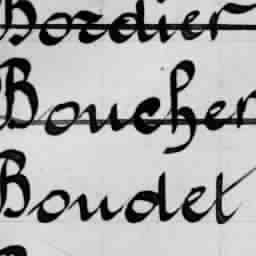 Bordier
Boucher
Boudet